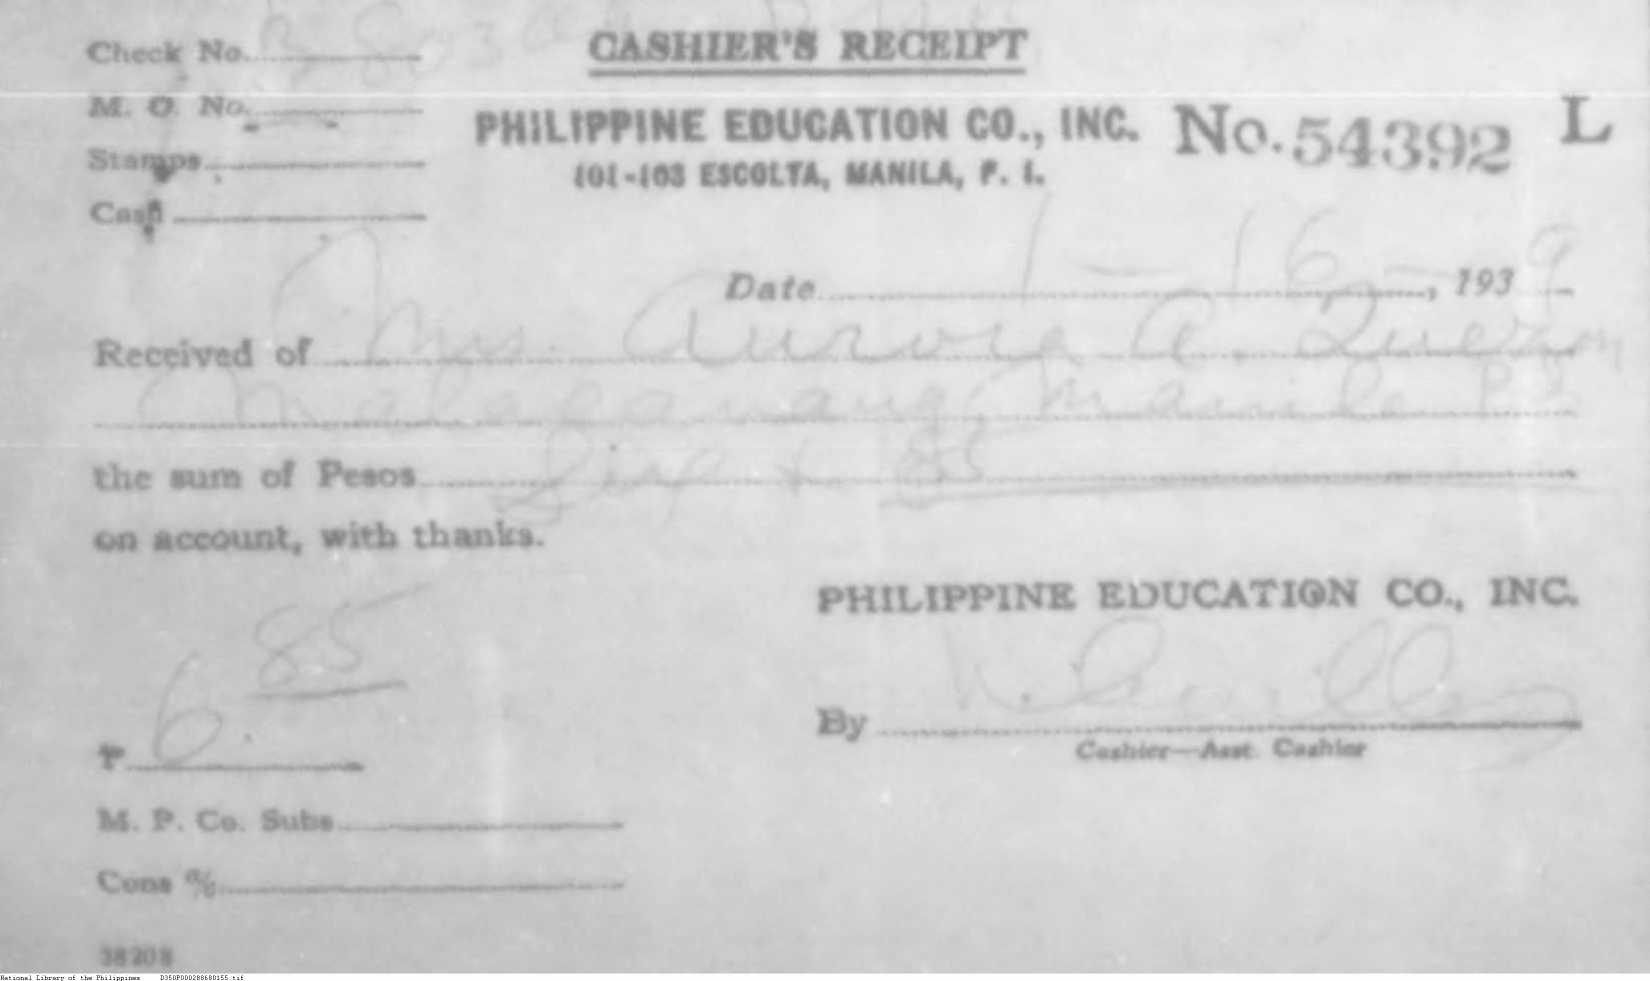 CASHIER'S RECEIPT
Check No.
M. O. No.
Stamps
Cash
PHILIPPINE EDUCATION CO., INC.
101-103 ESCOLTA, MANILA, P. I.
No. 54392 L
Date 1 - 16 -, 1939
Received of Mrs. Aurora A. Quezon
Malacanang, Manila P.I.
the sum of Pesos Six & 85
on account, with thanks.
PHILIPPINE EDUCATION CO., INC.
₱ 6.85
By
Cashier—Asst. Cashier
M. P. Co. Subs
Cons %
38208
National Library of the Philippines D350P000288680155.tif